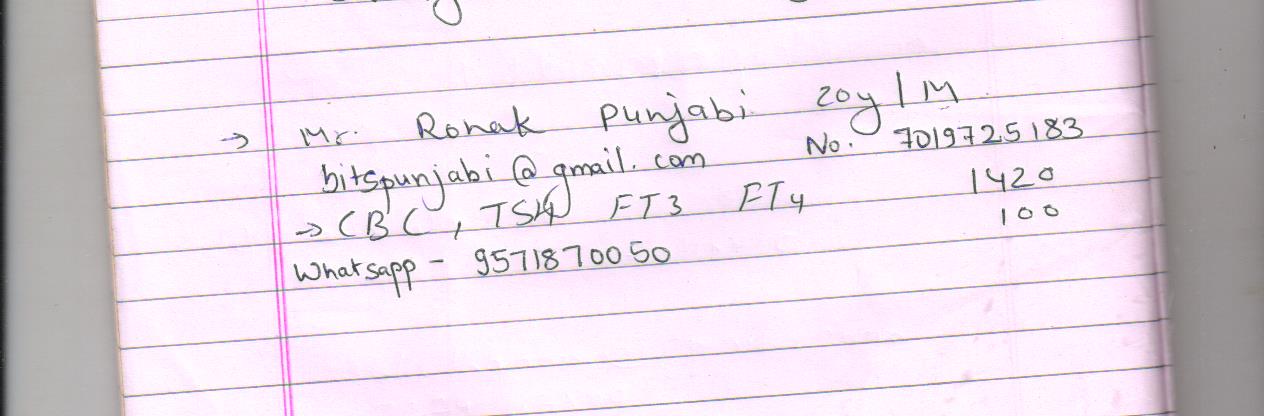 → Mr. Ronak Punjabi 20y/M
bitspunjabi@gmail.com No. 7019725183
→ CBC, TSH FT3 FT4 1420
100
Whatsapp - 9571870050